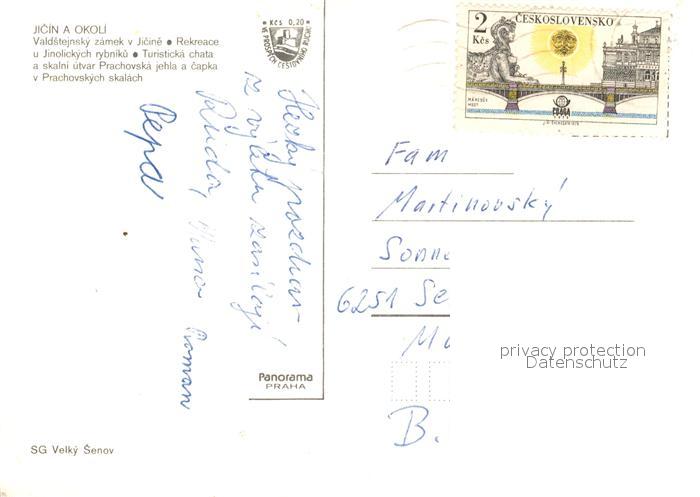 JIČÍN A OKOLÍ
Valdštejnský zámek v Jičíně • Rekreace
u Jinolických rybníků • Turistická chata
a skalní útvar Prachovská jehla a čapka
v Prachovských skalách
Kčs 0,20
VE PROSPĚCH CESTOVNÍHO RUCHU
2
Kčs
ČESKOSLOVENSKO
MÁNESŮV
MOST
PRAGA
1978
Hezký pozdrav
z výletu zasílají
Růda,
Roman
Pepa
Fam
Martinovský
Sonn
6251 Se
M
B.
privacy protection
Datenschutz
Panorama
PRAHA
SG Velký Šenov